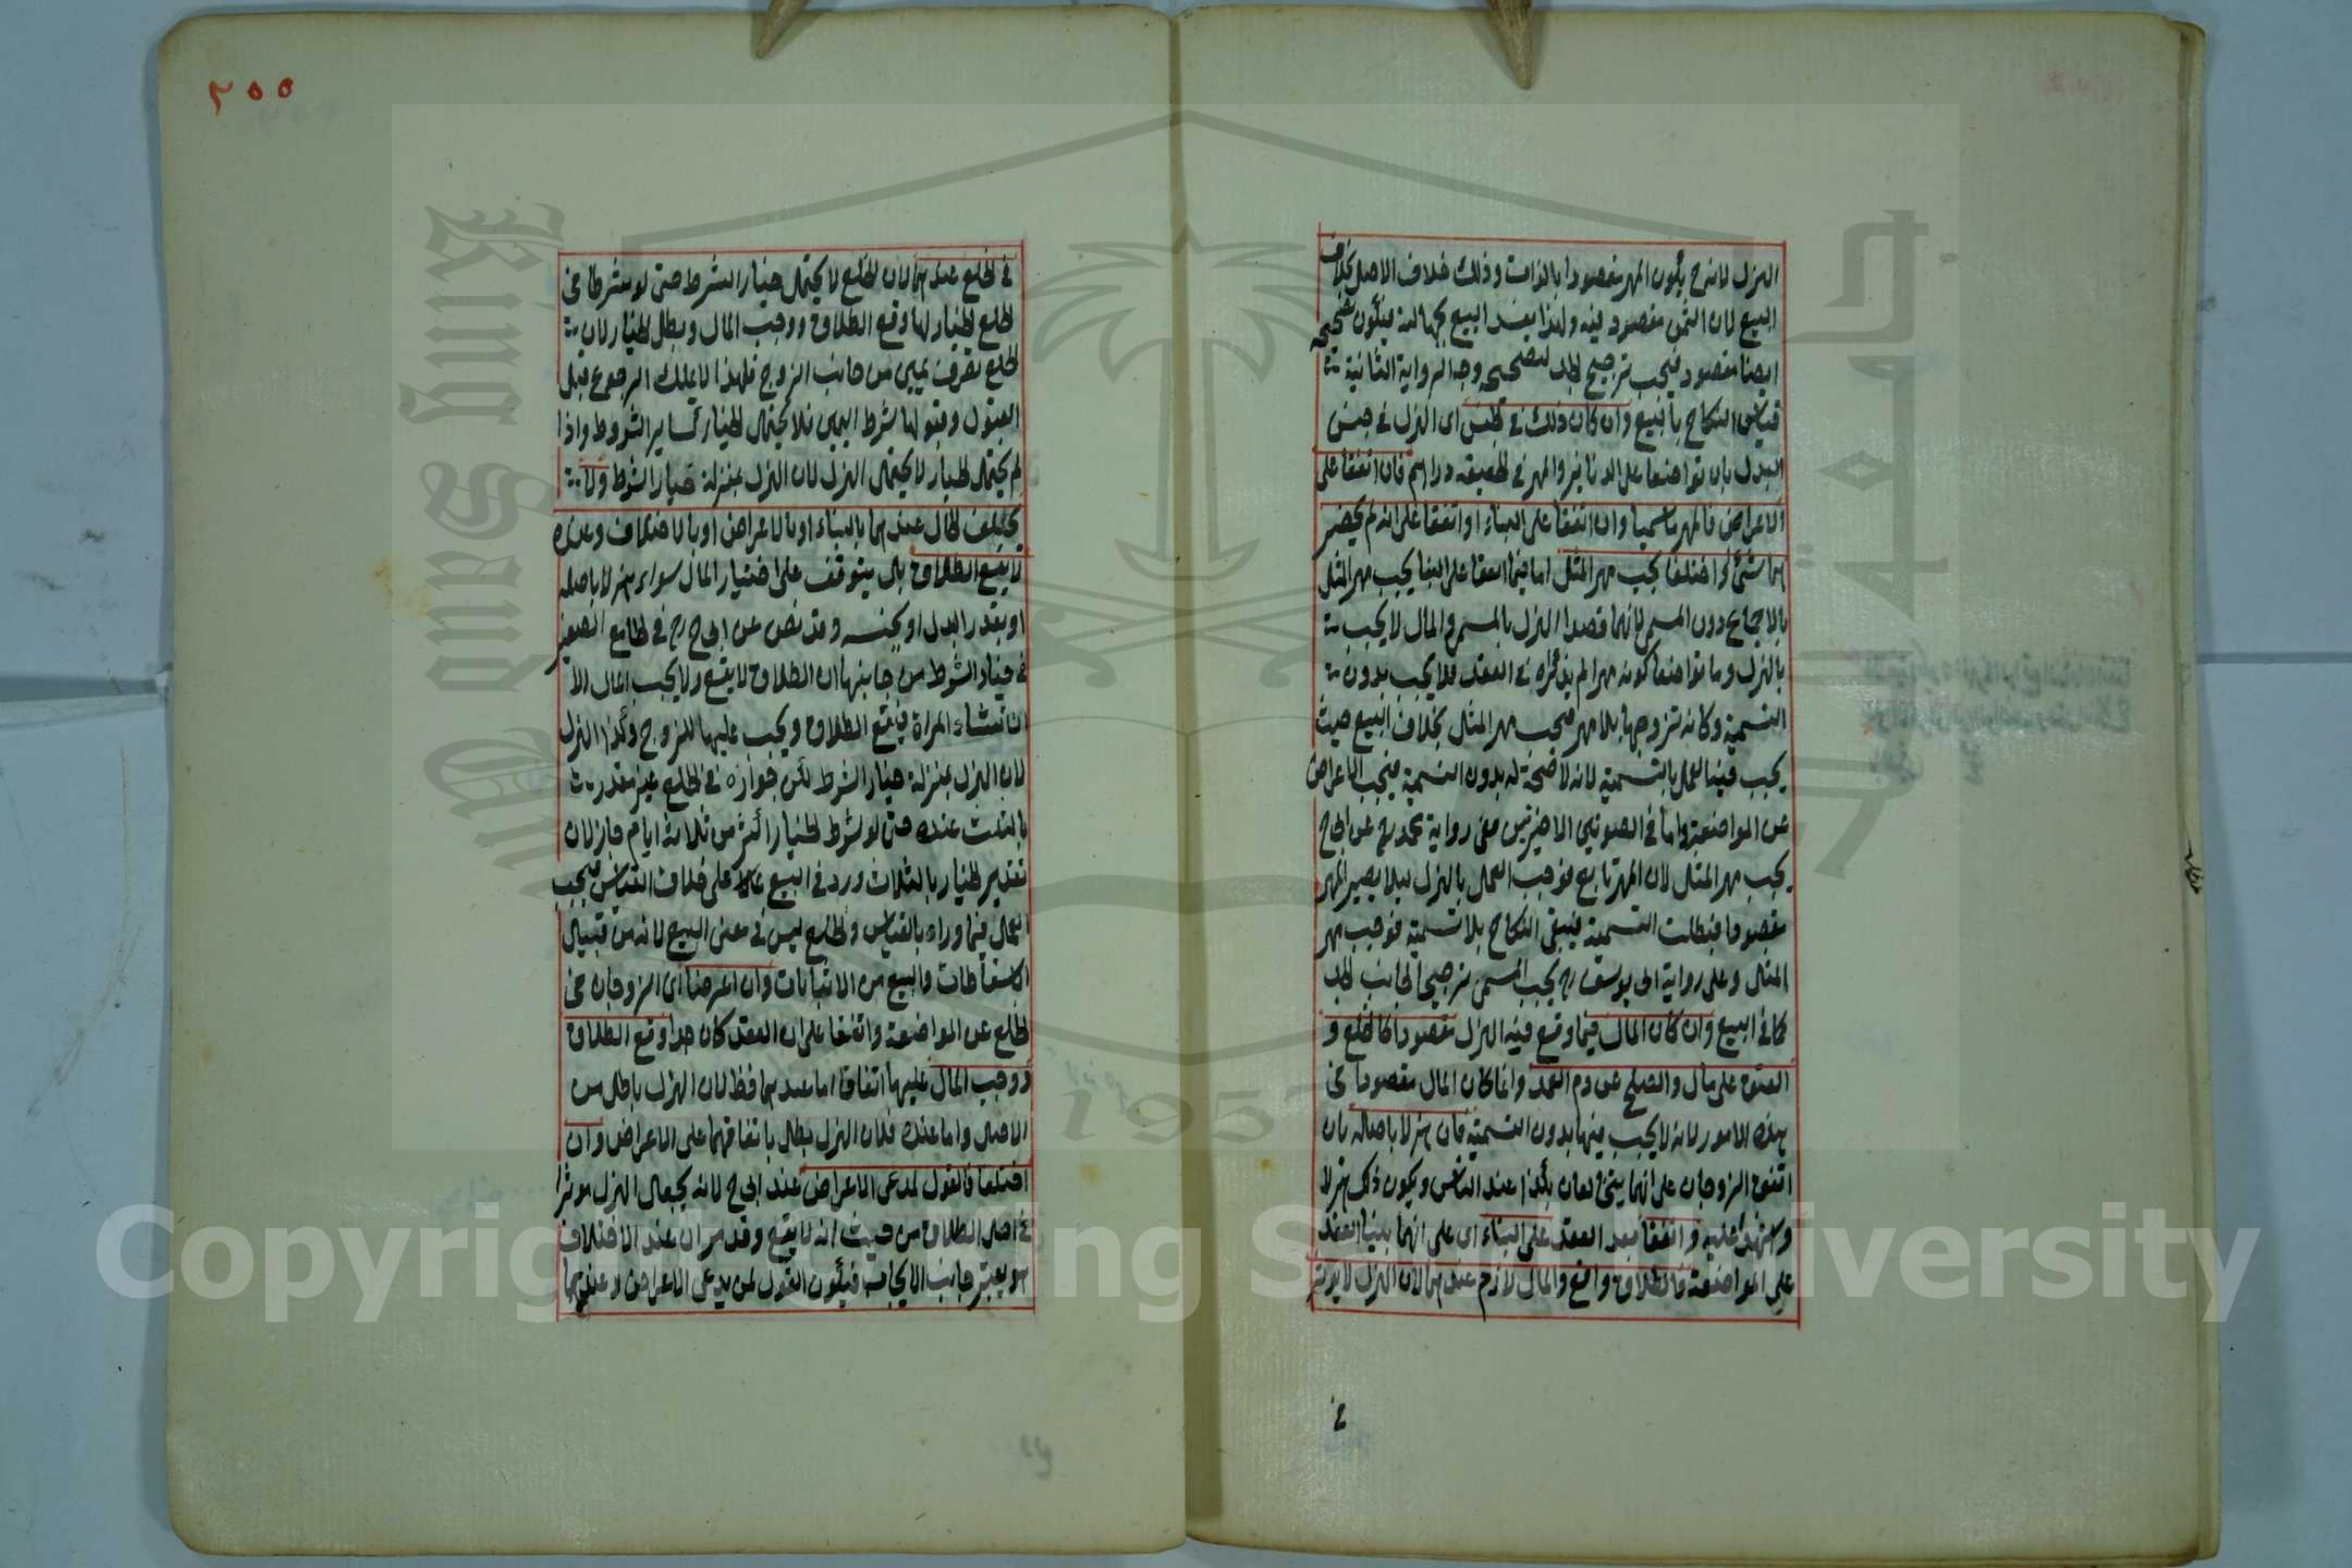 الهزل لانه ح يكون المهر مقصودا بالذات وذلك خلاف الاصل بخلاف
البيع لان الثمن مقصود فيه ولهذا يفسد البيع بجهالته فيكون تصحيحه
ايضا مقصود فيجب ترجيح الجد لتصحيحه وجه الرواية الثانية
قياس النكاح بالبيع وان كان ذلك في الجنس اى الهزل في جنس
البدل بان تواضعا على الدنانير والمهر في الحقيقه دراهم فان اتفقا على
الاعراض فالمهر ما سميا وان اتفقا على البناء او اتفقا على انه لم يحضر
هما شئ او اختلفا يجب مهر المثل اما فيما اتفقا على البنا يجب مهر المثل
بالاجماع دون المسمى لانهما قصدا الهزل بالمسمى والمال لا يجب
بالهزل وما تواضعا كونه مهرا لم يذكراه في العقد فلا يجب بدون
التسمية وكانه تزوجها بلا مهر فيجب مهر المثل بخلاف البيع حيث
يجب فيه العمل بالتسمية لانه لا صحة له بدون التسمية فيجب الاعراض
عن المواضعة واما في الصورتين الاخيرتين ففى رواية محمد رح عن ابى ح
يجب مهر المثل لان المهر تابع فوجب العمل بالهزل ليلا يصير المهر
مقصودا فبطلت التسمية فيبقى النكاح بلا تسمية فوجب مهر
المثل وعلى رواية ابى يوسف رح يجب المسمى ترجيحا لجانب الجد
كما في البيع وان كان المال فيما وقع فيه الهزل مقصودا كالخلع و
العتق على مال والصلح عن دم العمد وانما كان المال مقصودا في
هذه الامور لانه لا يجب فيها بدون التسمية فان هزلا باصله بان
اتفق الزوجان على انهما يتخالعان بكذا عند الناس ويكون ذلك هزلا
واشهدا عليه واتفقا بعد العقد على البناء اى على انهما بنيا العقد
على المواضعة فالطلاق واقع والمال لازم عندهما لان الهزل لا يوثر
في
٢٥٥
في الخلع عندهما لان الخلع لا يحتمل خيار الشرط حتى لو شرطا في
الخلع الخيار لها وقع الطلاق ووجب المال وبطل الخيار لان
الخلع تصرف يمين من جانب الزوج فلهذا لا يملك الرجوع قبل
القبول وقبولها شرط اليمين فلا يحتمل الخيار كساير الشروط واذا
لم يحتمل الخيار لا يحتمل الهزل لان الهزل بمنزلة خيار الشرط ولا
يختلف الحال عندهما بالبناء او بالاعراض او بالاختلاف وعنده
لا يقع الطلاق بل يتوقف على اختيار المال سواء هزلا باصله
او بقدر البدل او بجنسه وقد نص عن ابى ح رح في الجامع الصغير
في خيار الشرط من جانبها ان الطلاق لا يقع ولا يجب المال الا
ان تشاء المراة فيقع الطلاق ويجب عليها للزوج وكذا الهزل
لان الهزل بمنزلة خيار الشرط لكن جوازه في الخلع غير مقدر
بالثلث عنده حتى لو شرط الخيار اكثر من ثلاثة ايام جاز لان
تقدير الخيار بالثلاث ورد في البيع على خلاف القياس فيجب
العمل فيما وراء بالقياس والخلع ليس في معنى البيع لانه من قبيل
الاسقاطات والبيع من الاثباتات وان اعرضا اى الزوجان في
الخلع عن المواضعة واتفقا على ان العقد كان جدا وقع الطلاق
ووجب المال عليها اتفاقا اما عندهما فظ لان الهزل باطل من
الاصل واما عنده فلان الهزل بطل باتفاقهما على الاعراض وان
اختلفا فالقول لمدعى الاعراض عند ابى ح لانه يجعل الهزل موثرا
في اصل الطلاق من حيث انه لا يقع وقد مر ان عند الاختلاف
هو يعتبر جانب الايجاب فيكون القول لمن يدعى الاعراض وعندهما
Copyright © King Saud University
King Saud University
1957